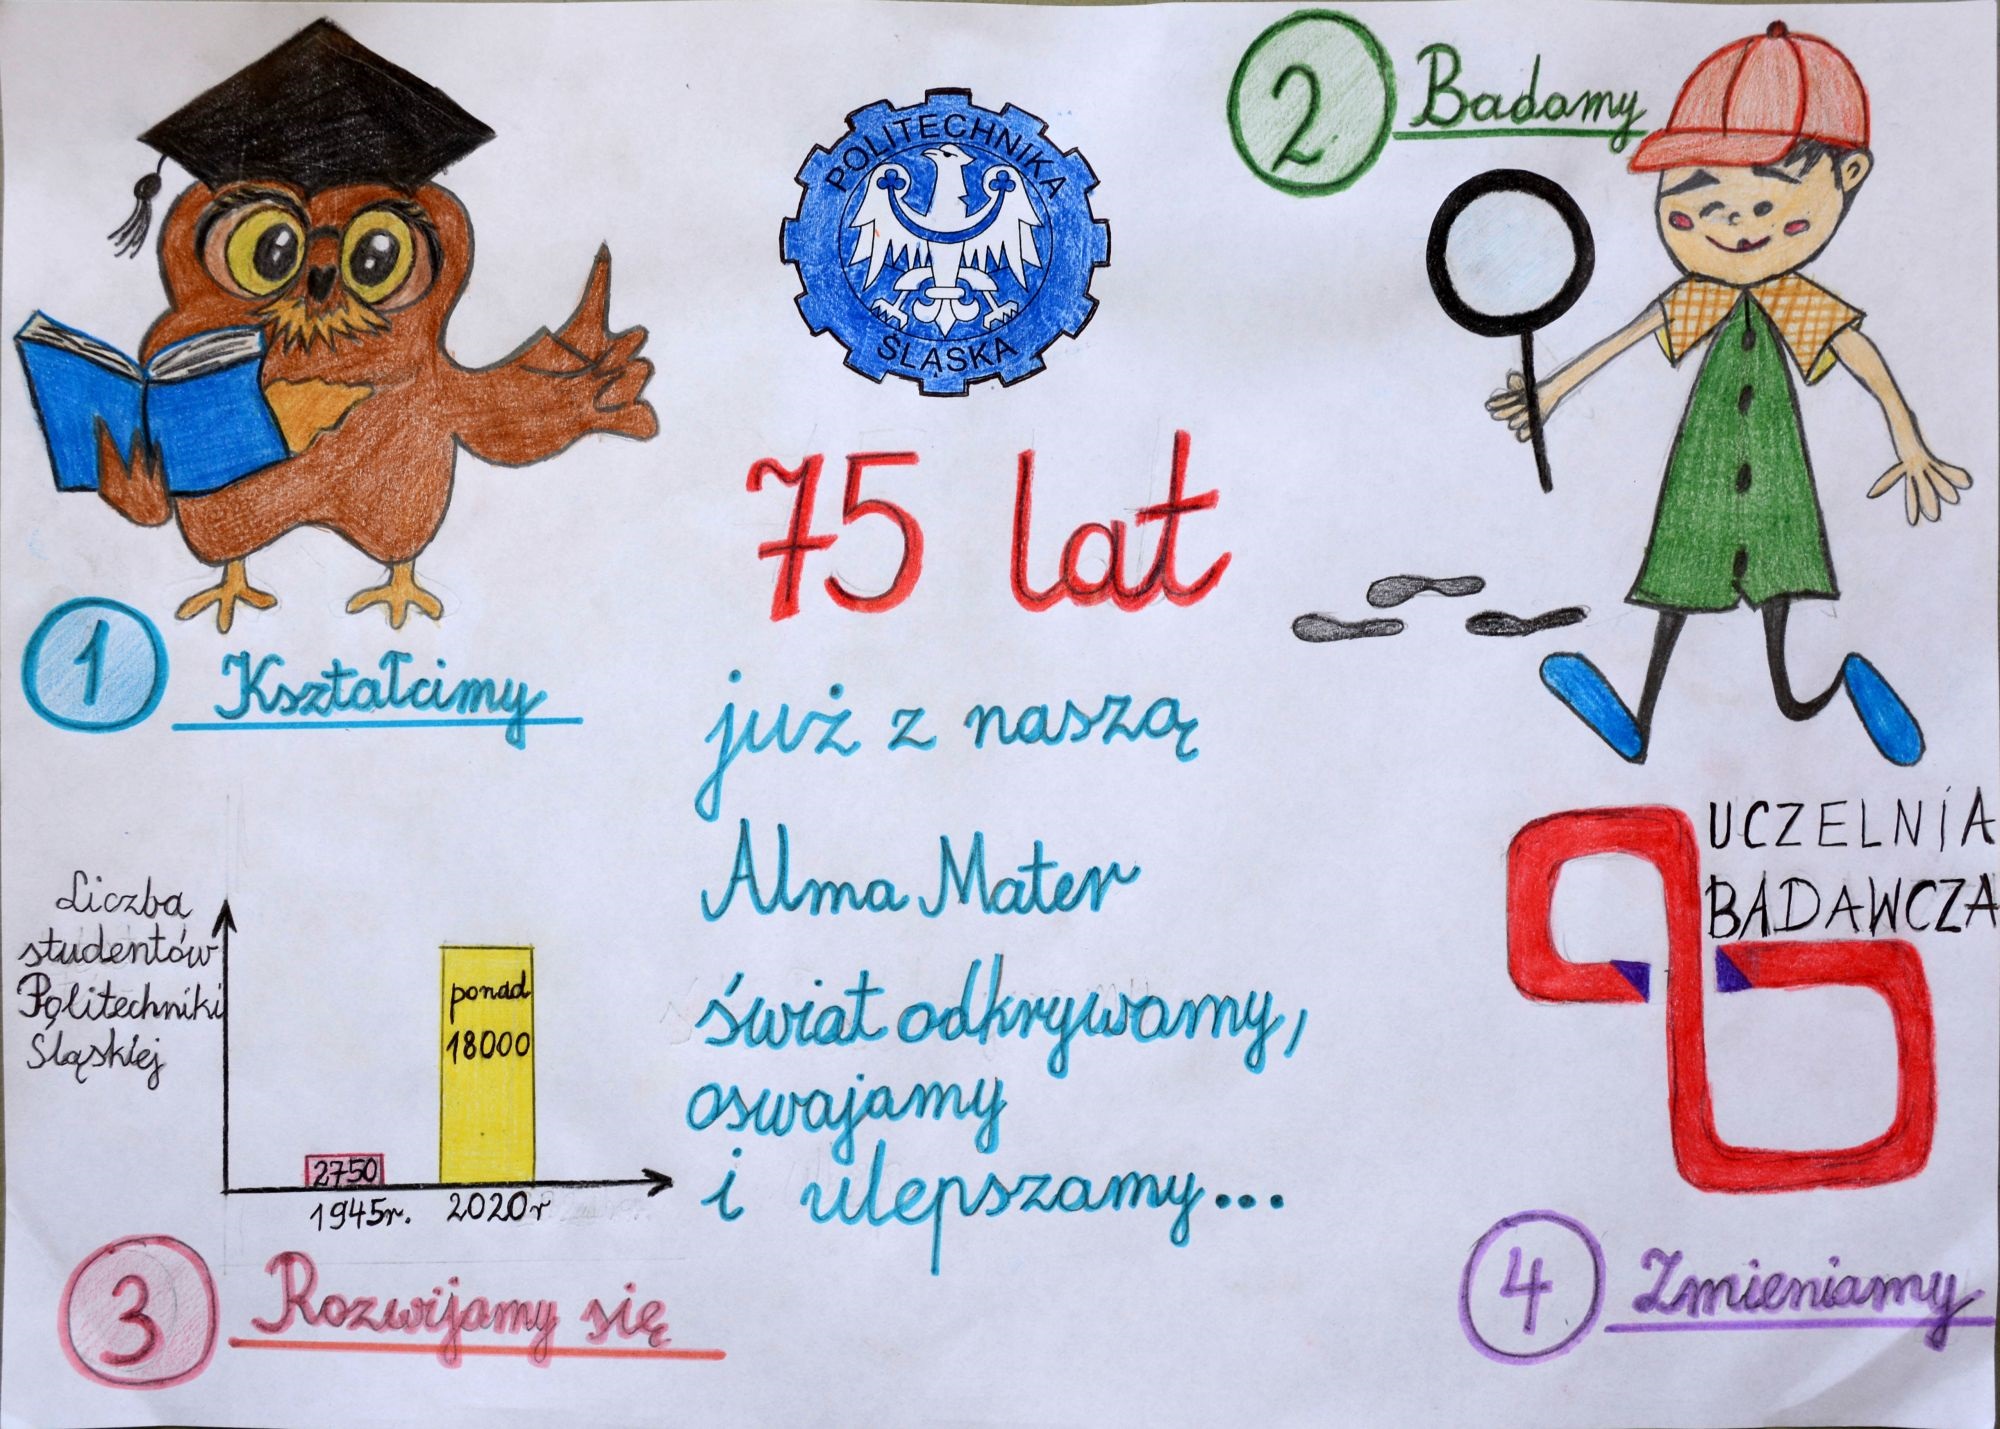 POLITECHNIKA
ŚLĄSKA
75 lat
już z naszą
Alma Mater
świat odkrywamy,
oswajamy
i ulepszamy...
1 Kształcimy
2 Badamy
Liczba
studentów
Politechniki
Śląskiej
2750
1945r.
ponad
18000
2020r
3 Rozwijamy się
UCZELNIA
BADAWCZA
4 Zmieniamy